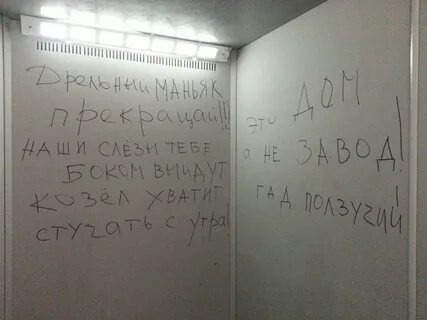 Дрельний МАНЬЯК
прекращай!!!
НАШИ СЛЁЗЫ ТЕБЕ
БОКОМ ВЫЙДУТ
КОЗЁЛ ХВАТИТ
СТУЧАТЬ С УТРА!
ЭТО ДОМ
а НЕ ЗАВОД!
ГАД ПОЛЗУЧИЙ!